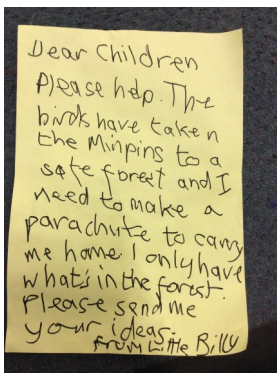 Dear Children
Please help. The
birds have taken
the Minpins to a
safe forest and I
need to make a
parachute to carry
me home. I only have
what's in the forest.
Please send me
your ideas.
from Little Billy